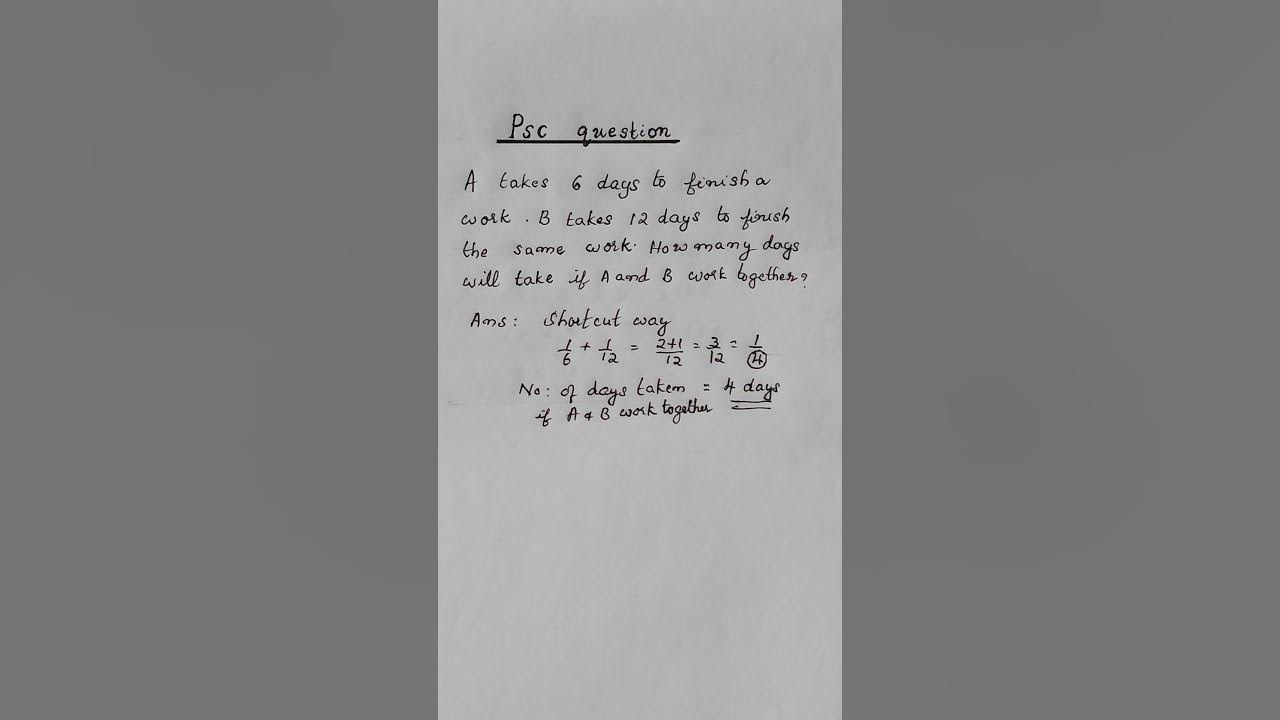 Psc question
A takes 6 days to finish a
work. B takes 12 days to finish
the same work. How many days
will take if A and B work together?
Ans: Shortcut way
1/6 + 1/12 = 2+1/12 = 3/12 = 1/4
No: of days taken = 4 days
if A & B work together